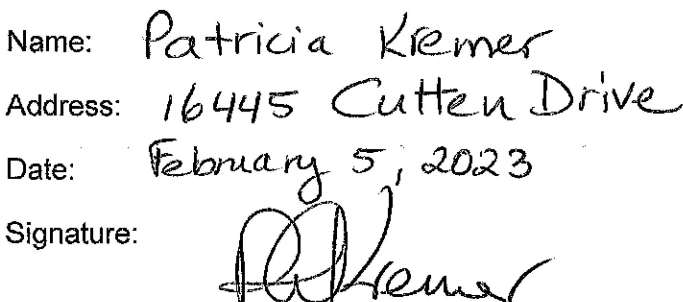 Name: Patricia Kremer
Address: 16445 Cutten Drive
Date: February 5, 2023
Signature: Kremer